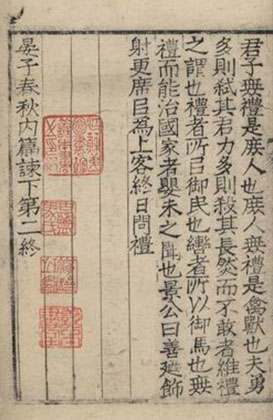 君子無禮是庶人也庶人無禮是禽獸也夫勇
多則弑其君力多則殺其長然而不敢者維禮
之謂也禮者所㠯御民也轡者所以御馬也無
禮而能治國家者嬰未之聞也景公曰善廼飾
射更席㠯為上客終日問禮
晏子春秋內篇諫下第二終